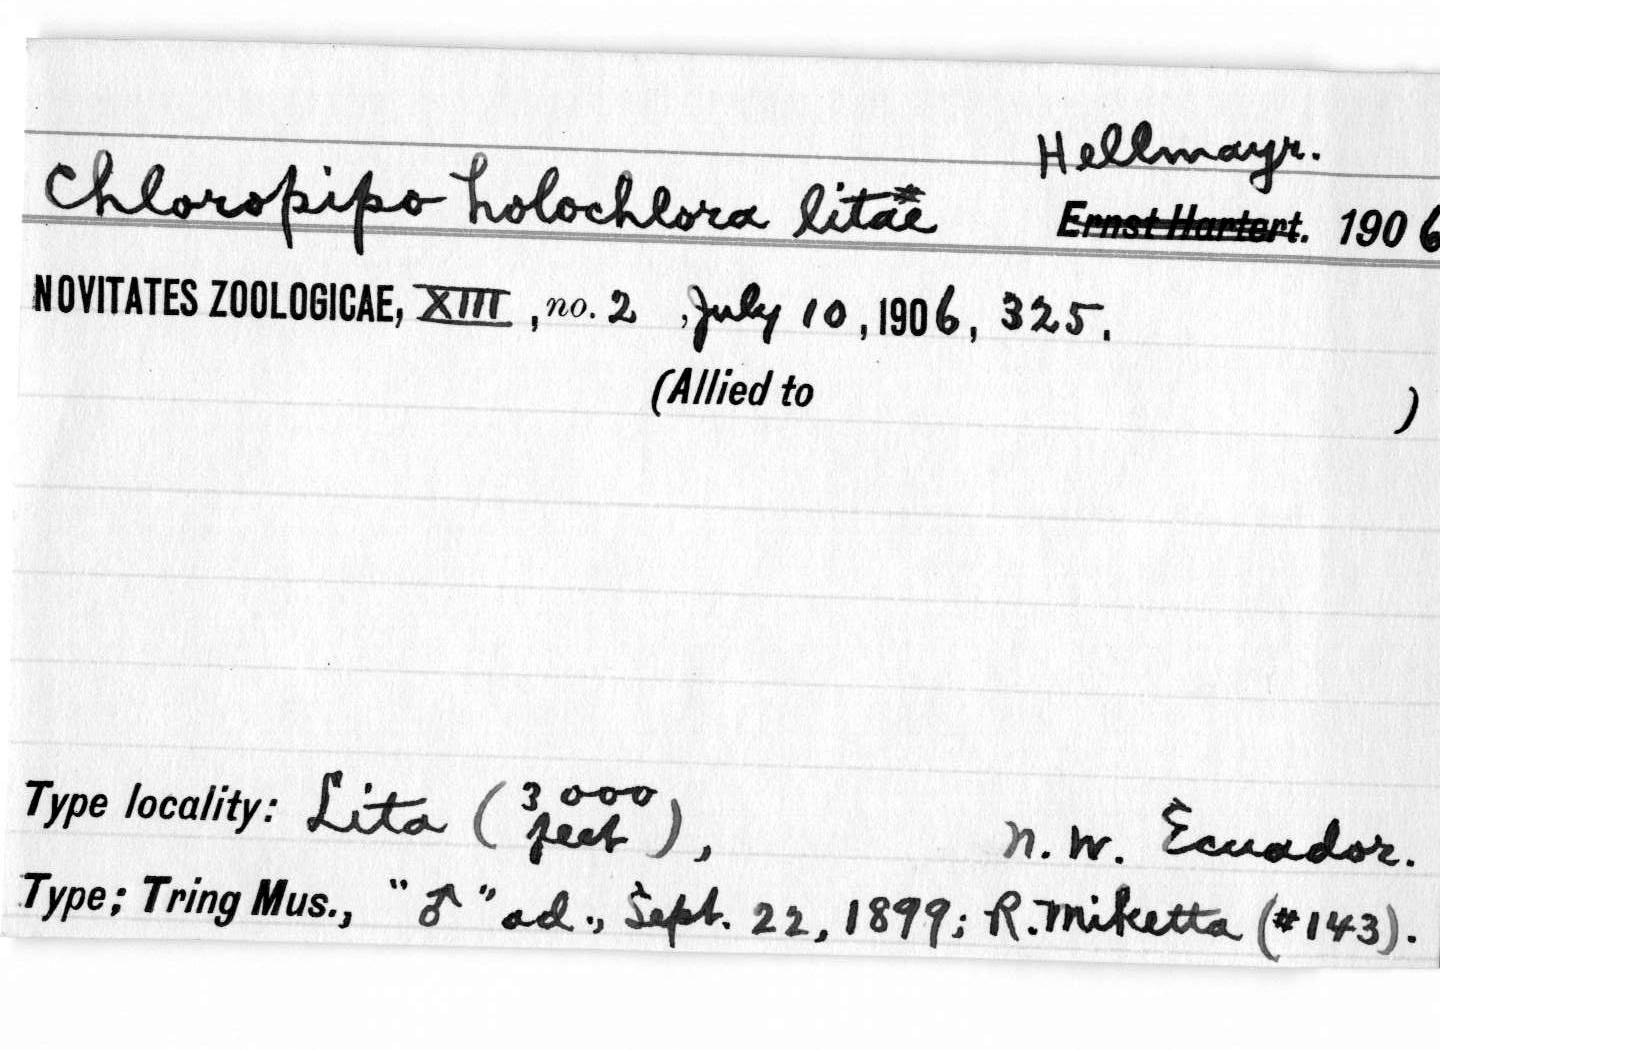 Hellmayr.
Chloropipo holochlora litae* Ernst Hartert. 1906
NOVITATES ZOOLOGICAE, XIII, no. 2, July 10, 1906, 325.
(Allied to )
Type locality: Lita (3000 feet), N. W. Ecuador.
Type; Tring Mus., "♂" ad., Sept. 22, 1899; R. Miketta (#143).